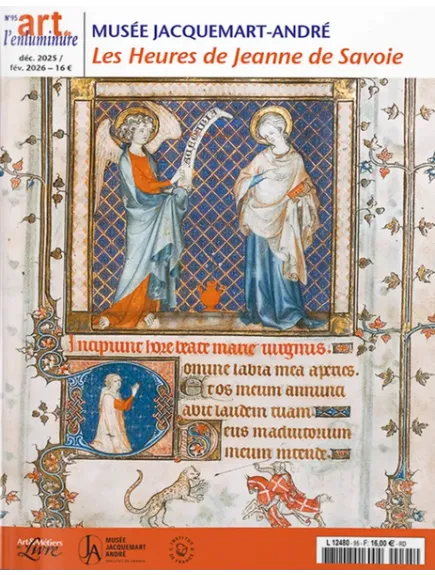 N°95
art de
l'enluminure
déc. 2025 /
fév. 2026 – 16 €
MUSÉE JACQUEMART-ANDRÉ
Les Heures de Jeanne de Savoie
Incipiunt hore beate marie uirginis.
Domine labia mea aperies.
Et os meum annunci
abit laudem tuam
Deus in adiutorium
meum intende.
Art & Métiers
du Livre
JA
MUSÉE
JACQUEMART
ANDRÉ
L 12480 - 95 - F: 16,00 € - RD